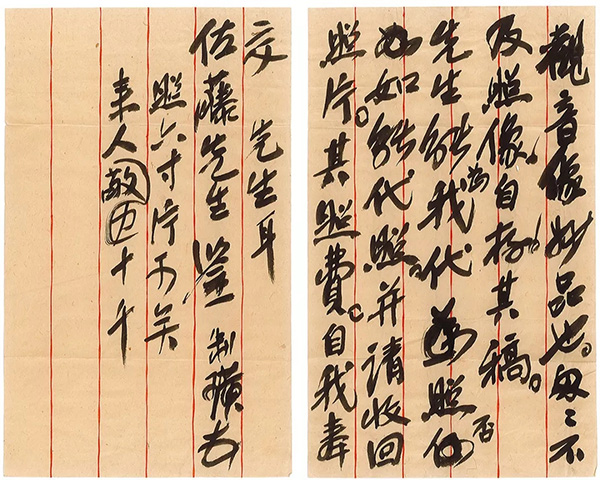 觀音像妙品也。因不
及照像。自存其稿。
先生能為我代照何否
如能代照。并請收回
照片。其照費。自我奉
交 先生耳
佐藤先生鑒 制璜
照六寸片可矣
來人敬十